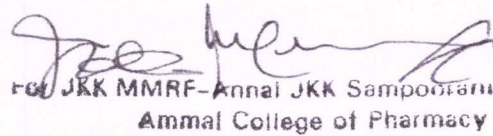 For JKK MMRF-Annai JKK Sampoorani
Ammal College of Pharmacy